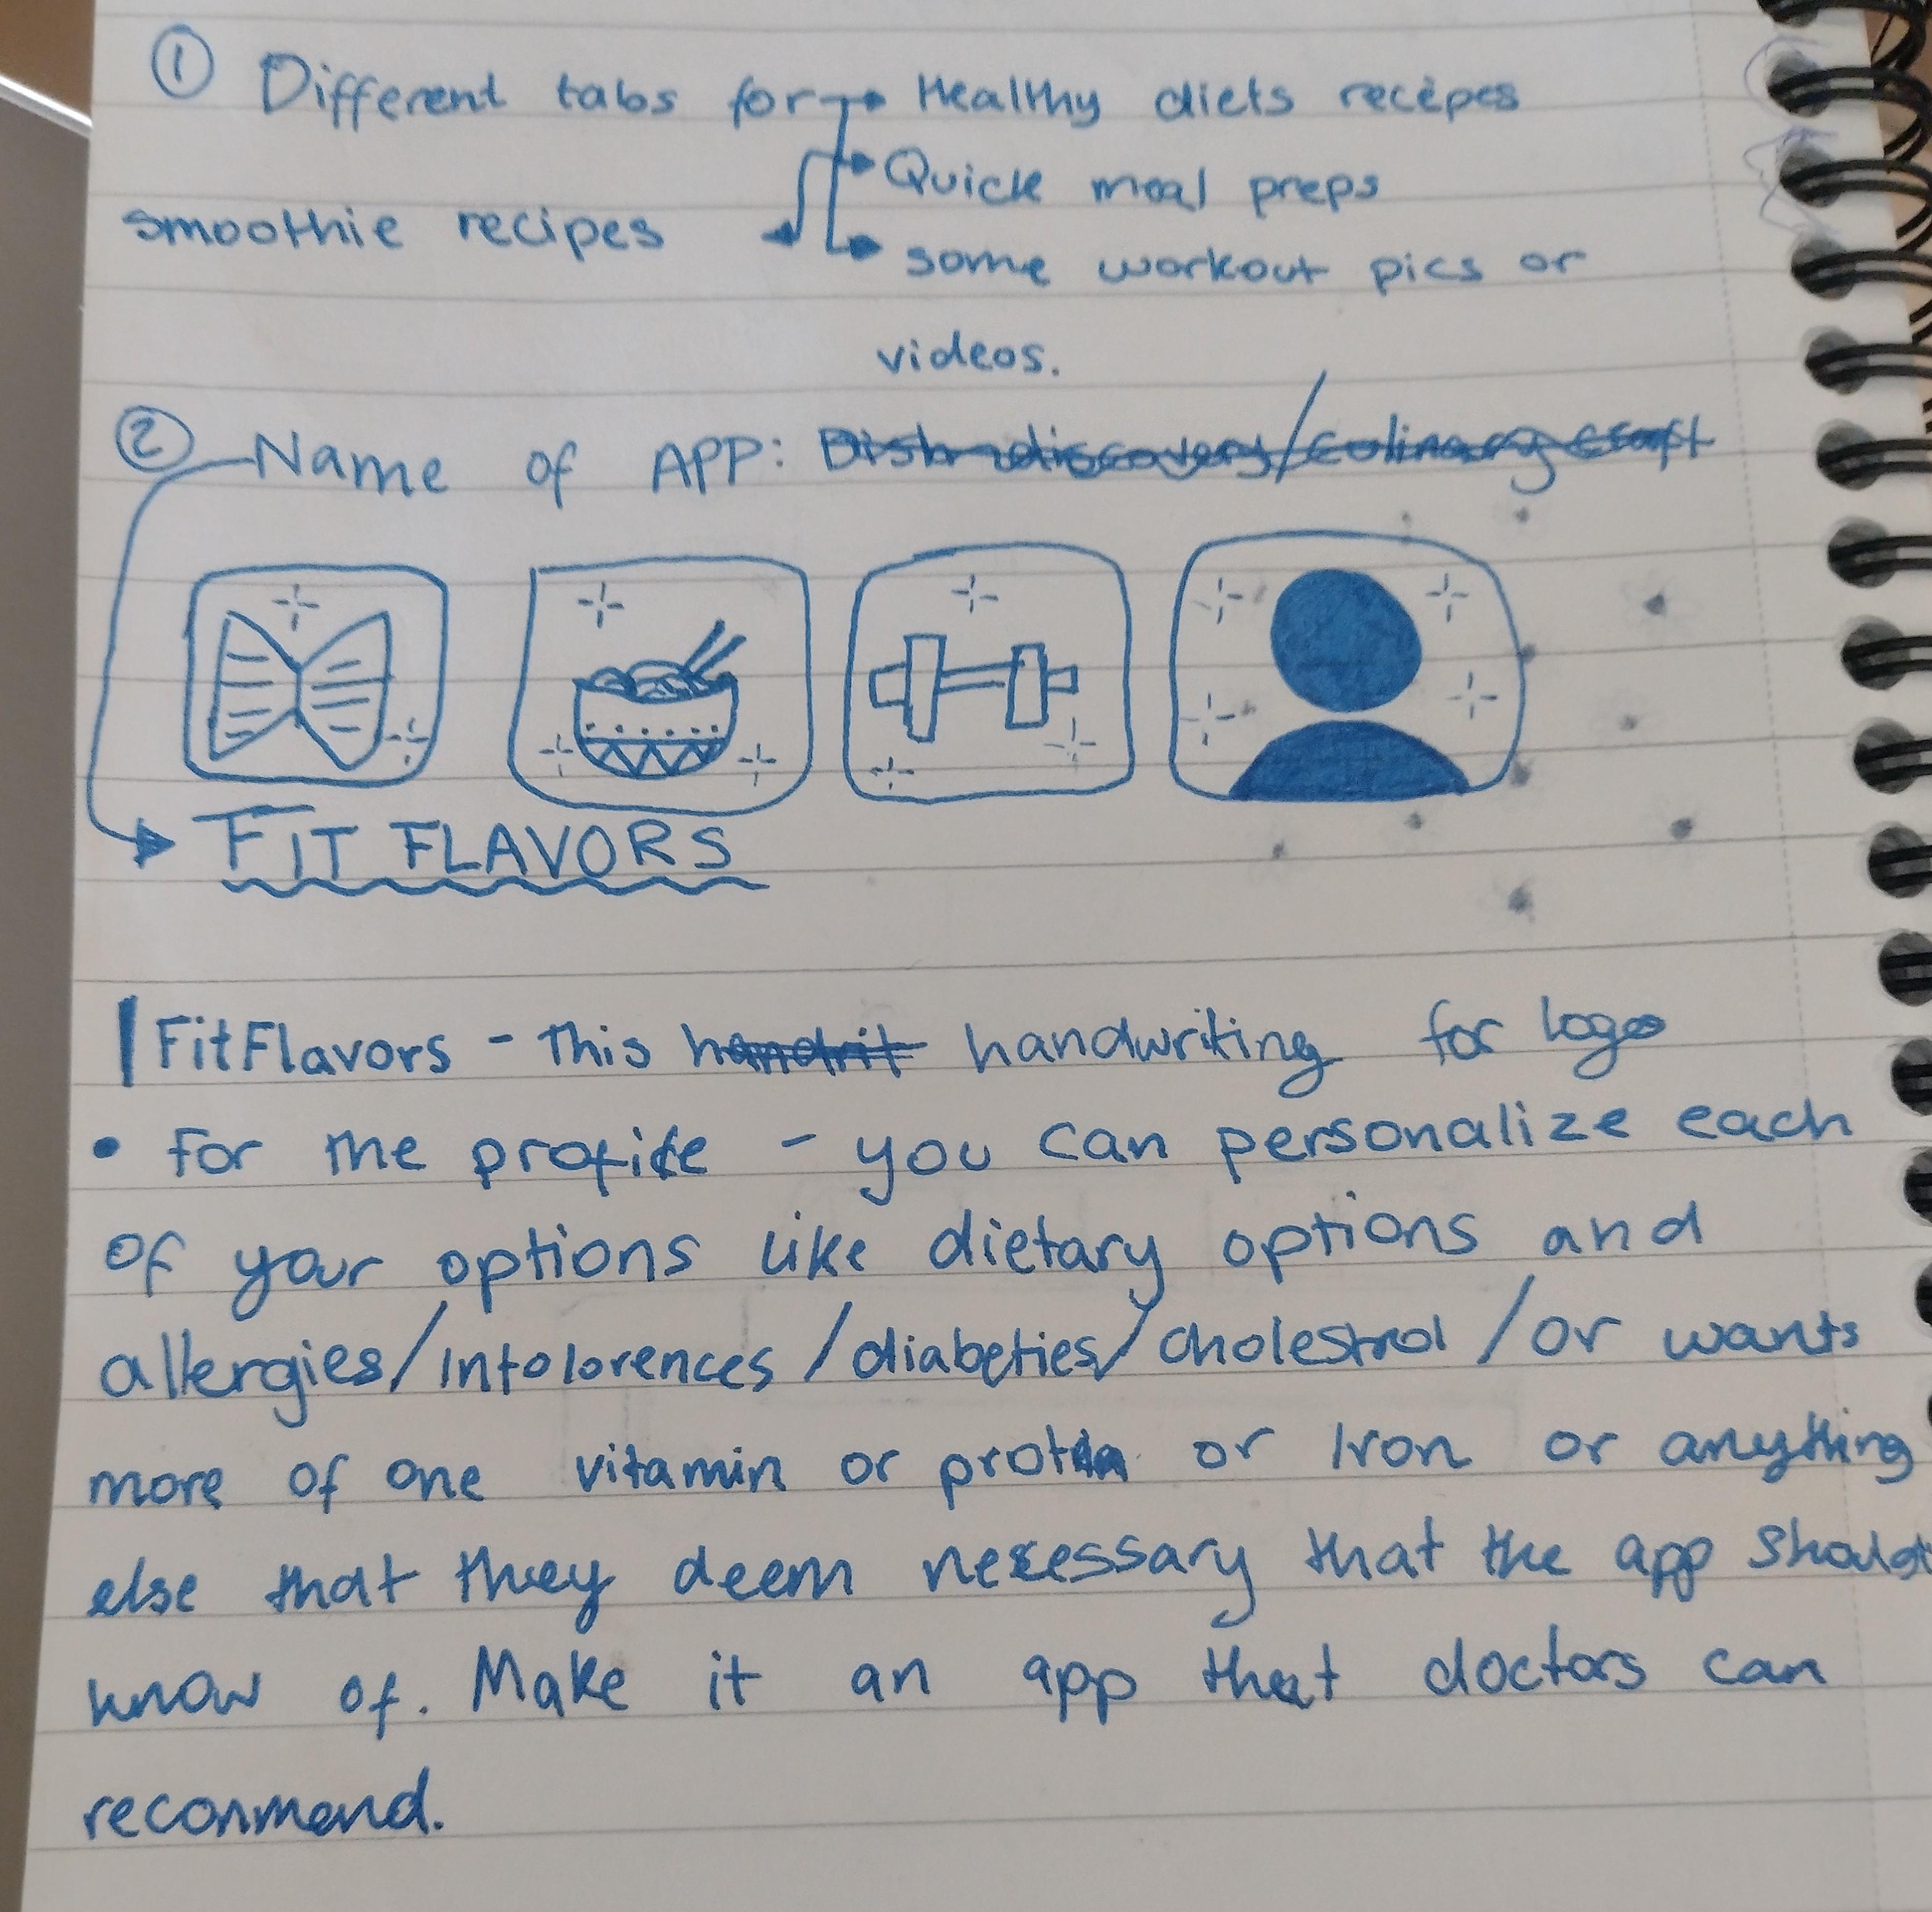 ① Different tabs for → Healthy diets recipes
→ Quick meal preps
smoothie recipes
→ some workout pics or
videos.
② Name of APP: Dish discovery/culinary craft
FIT FLAVORS
FitFlavors - This handrit handwriting for logo
• for the profile - you can personalize each
of your options like dietary options and
allergies/intolorences/diabeties/cholestrol/or wants
more of one vitamin or protin or Iron or anything
else that they deem necessary that the app should
know of. Make it an app that doctors can
reconmend.